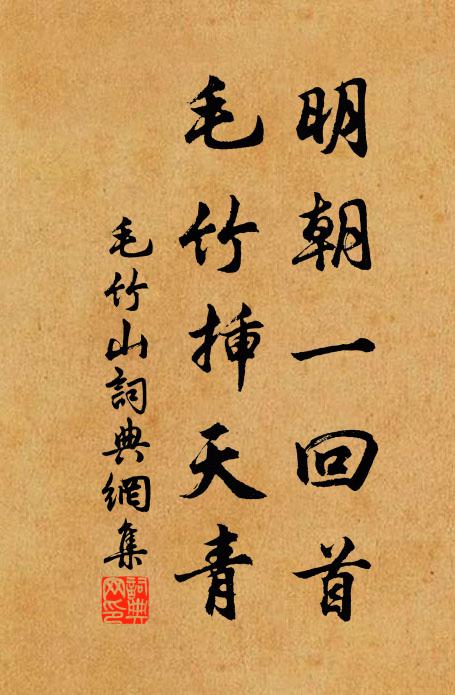 明朝一回首
毛竹插天青
毛竹山詞典網集
詞典
网印